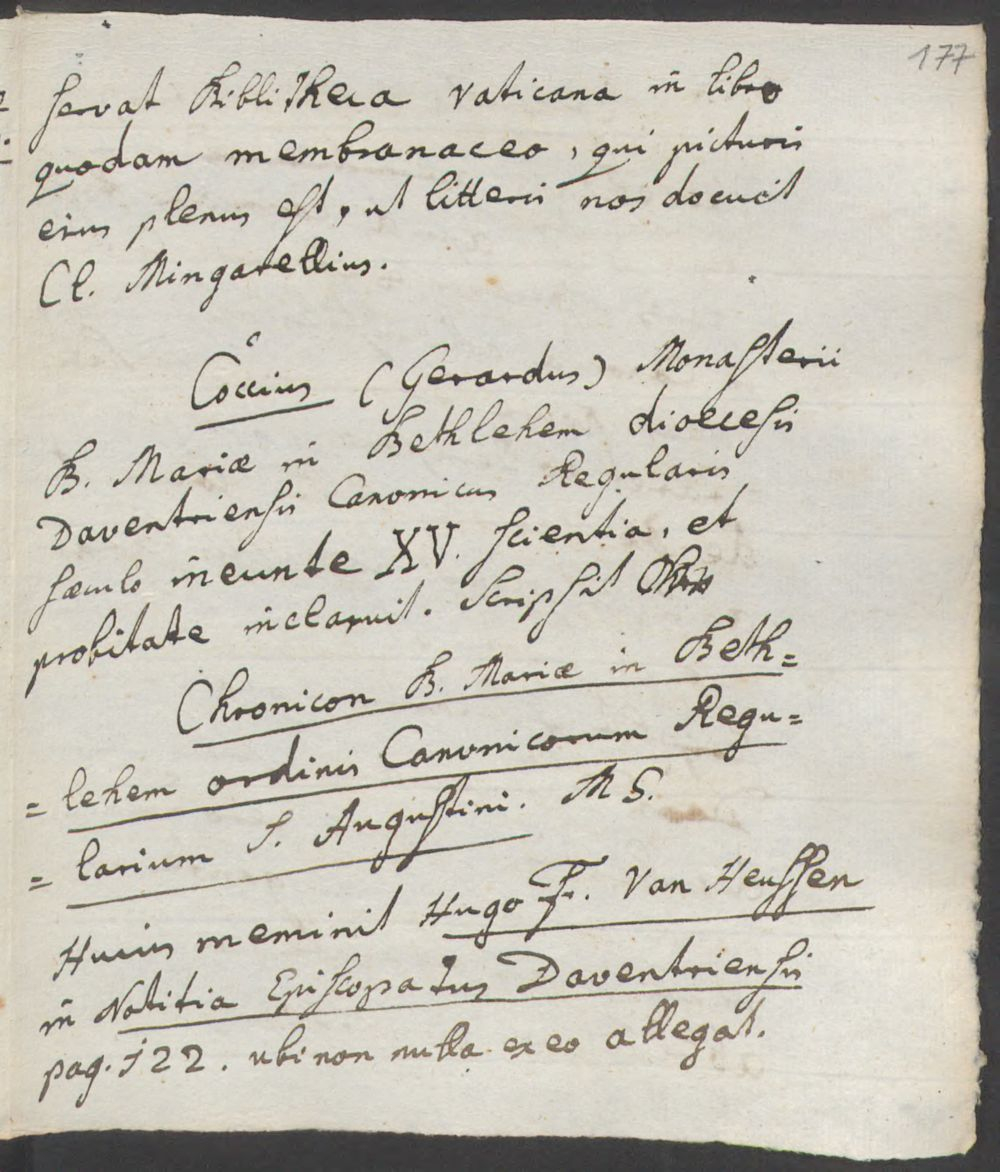 177
servat Biblitheca Vaticana in libro
quodam membranaceo, qui picturis
eius plenus est, ut litteris nos docuit
Cl. Mingarellius.
Coccius (Gerardus) Monasterii
B. Mariæ in Bethlehem dioecesis
Daventriensis Canonicus Regularis
sæculo ineunte XV. scientia, et
probitate inclaruit. Scripsit
Chronicon B. Mariæ in Beth=
= lehem ordinis Canonicorum Regu=
= larium S. Augustini. MS.
Huius meminit Hugo Fr. Van Heussen
in Notitia Episcopatus Daventriensis
pag. 122. ubi non nulla ex eo allegat.